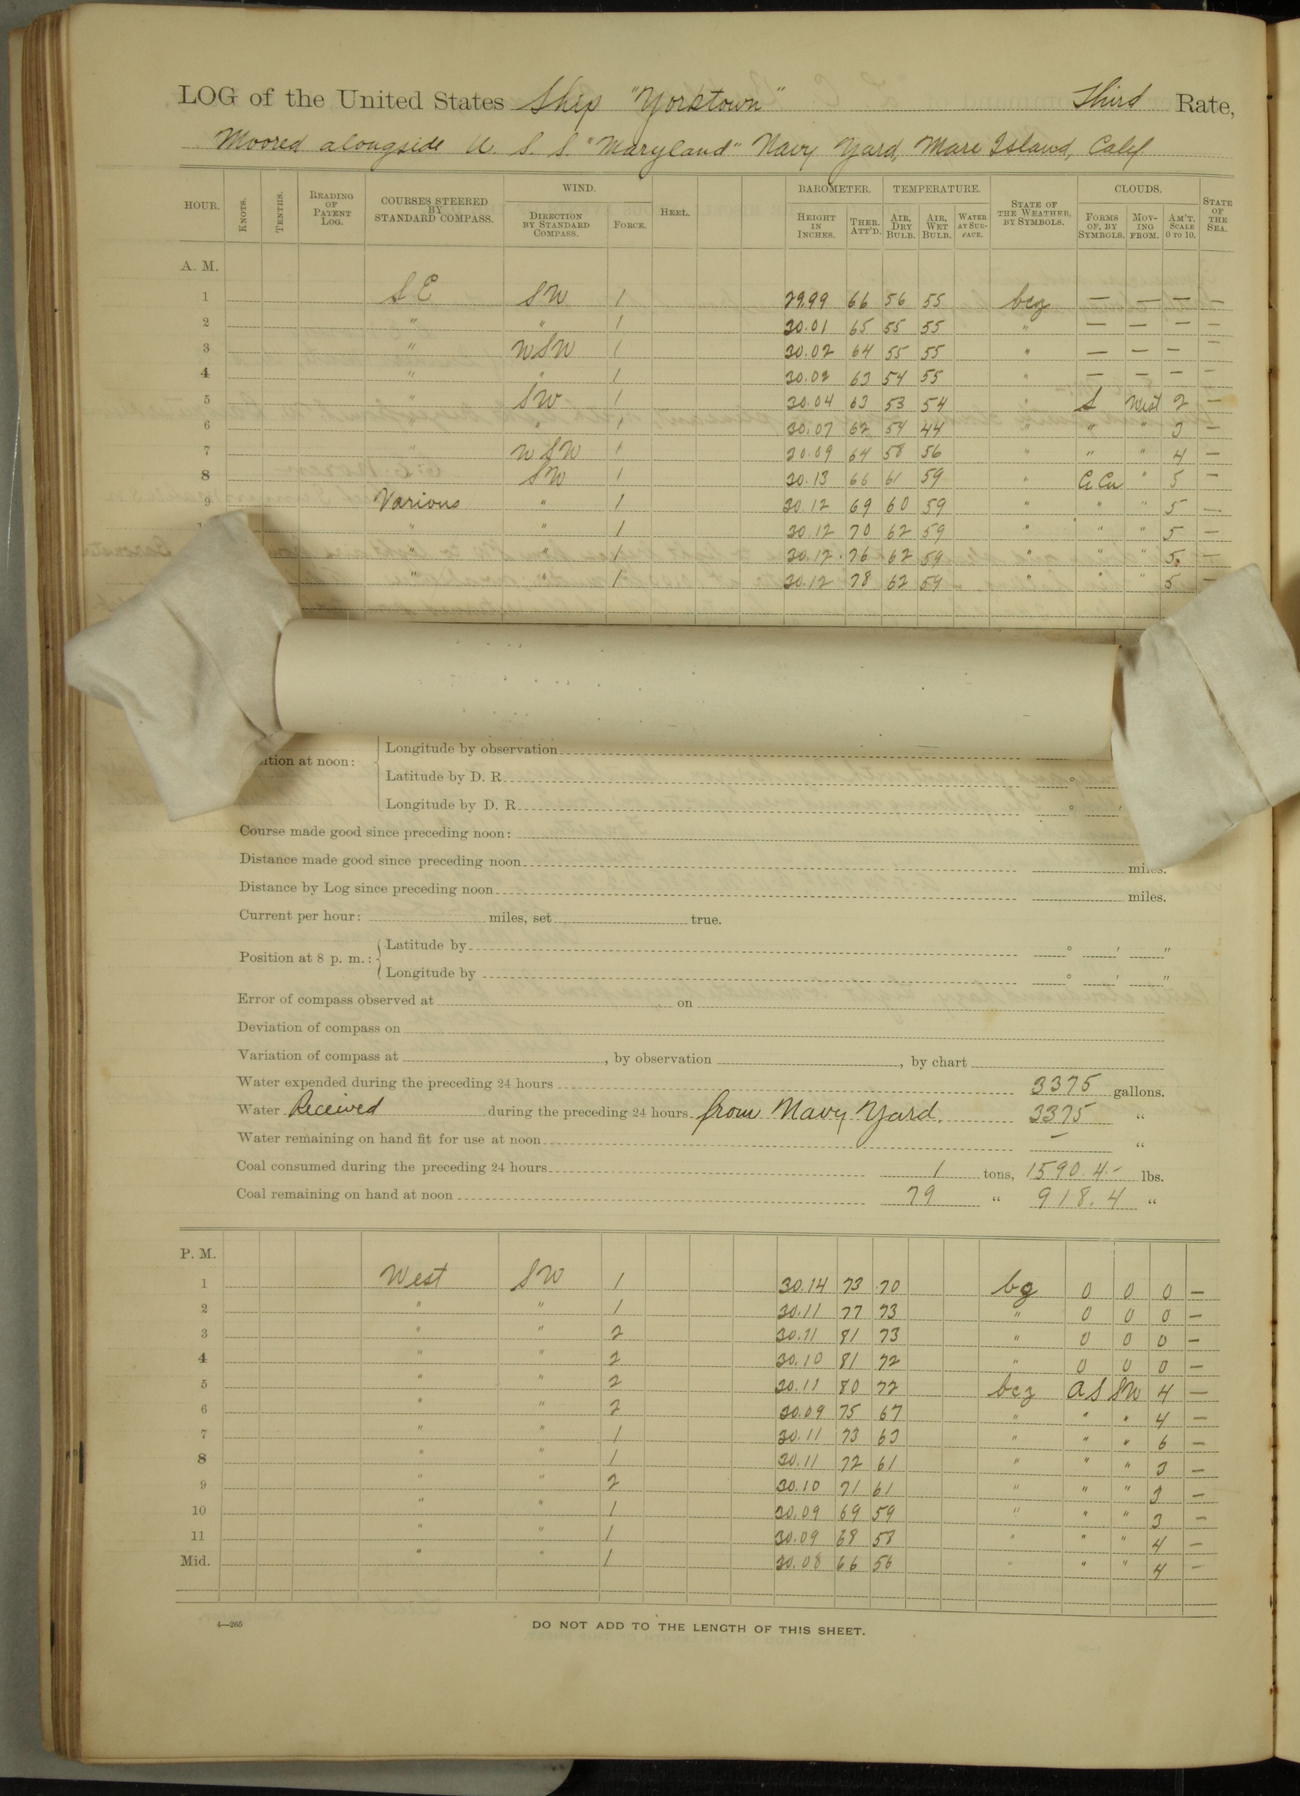 LOG of the United States Ship "Yorktown" Third Rate,
Moored alongside U. S. S. "Maryland" Navy Yard, Mare Island, Calif
HOUR. KNOTS. TENTHS. READING OF PATENT LOG. COURSES STEERED BY STANDARD COMPASS. WIND. DIRECTION BY STANDARD COMPASS. FORCE. HEEL. BAROMETER. HEIGHT IN INCHES. THER. ATT'D. TEMPERATURE. AIR, DRY BULB. AIR, WET BULB. WATER AT SURFACE. STATE OF THE WEATHER, BY SYMBOLS. CLOUDS. FORMS OF, BY SYMBOLS. MOVING FROM. AM'T. SCALE 0 TO 10. STATE OF THE SEA.
A. M.
1 SE SW 1 29.99 66 56 55 bcz — — — —
2 " " 1 30.01 65 55 55 " — — — —
3 " WSW 1 30.02 64 55 55 " — — — —
4 " " 1 30.02 63 54 55 " — — — —
5 " SW 1 30.04 63 53 54 " S West 2 —
6 " " 1 30.07 62 54 44 " " " 3 —
7 " WSW 1 30.09 64 58 56 " " " 4 —
8 " SW 1 30.13 66 61 59 " Ci.Cu " 5 —
9 Various " 1 30.12 69 60 59 " " " 5 —
" " 1 30.12 70 62 59 " " " 5 —
" " 1 30.12 76 62 59 " " " 5 —
" " 1 30.12 78 62 59 " " " 5 —
Longitude by observation
ition at noon:
Latitude by D. R. °
Longitude by D. R. ° '
Course made good since preceding noon:
Distance made good since preceding noon miles.
Distance by Log since preceding noon miles.
Current per hour: miles, set true.
Position at 8 p. m.: Latitude by ° ' "
Longitude by ° ' "
Error of compass observed at on
Deviation of compass on
Variation of compass at , by observation , by chart
Water expended during the preceding 24 hours 3375 gallons.
Water Received during the preceding 24 hours from Navy Yard. 3375 "
Water remaining on hand fit for use at noon — "
Coal consumed during the preceding 24 hours 1 tons, 1590.4 - lbs.
Coal remaining on hand at noon 79 " 918.4 "
P. M.
1 West SW 1 30.14 73 70 bz 0 0 0 —
2 " " 1 30.11 77 73 " 0 0 0 —
3 " " 2 30.11 81 73 " 0 0 0 —
4 " " 2 30.10 81 72 " 0 0 0 —
5 " " 2 30.11 80 72 bcz AS SW 4 —
6 " " 2 30.09 75 67 " " " 4 —
7 " " 1 30.11 73 63 " " " 6 —
8 " " 1 30.11 72 61 " " " 3 —
9 " " 2 30.10 71 61 " " " 3 —
10 " " 1 30.09 69 59 " " " 3 —
11 " " 1 30.09 68 58 " " " 4 —
Mid. " " 1 30.08 66 56 " " " 4 —
4—265
DO NOT ADD TO THE LENGTH OF THIS SHEET.